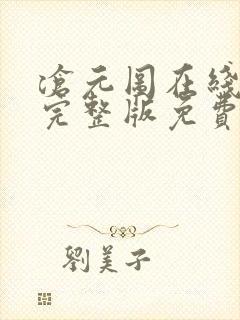 滄元圖在綫
完整版免費
劉美子